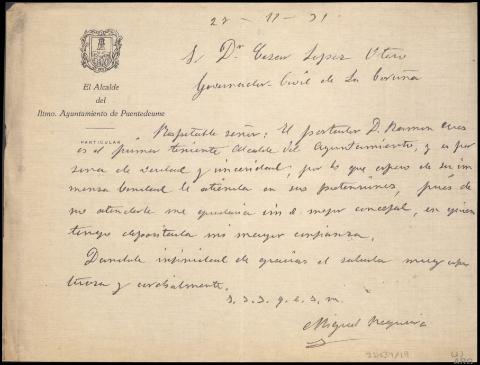 27-11-31
S. Dr. Cesar Lopez Otero
Governador Civil de La Coruña
El Alcalde
del
Iltmo. Ayuntamiento de Puentedeume
PARTICULAR
Respetable señor: El portador D. Ramon
es el primer teniente Alcalde del Ayuntamiento, y es per
sona de verdad y sinceridad, por lo que espero de su in
mensa bondad le atienda en sus pretensiones, pués de
no atenderle me quedaria sin el mejor concejal, en quien
tengo depositada mi mayor confianza.
Dandole infinidad de gracias el saluda muy aten
tuosa y cordialmente.
s. s. s. q. e. s. m.
Miguel